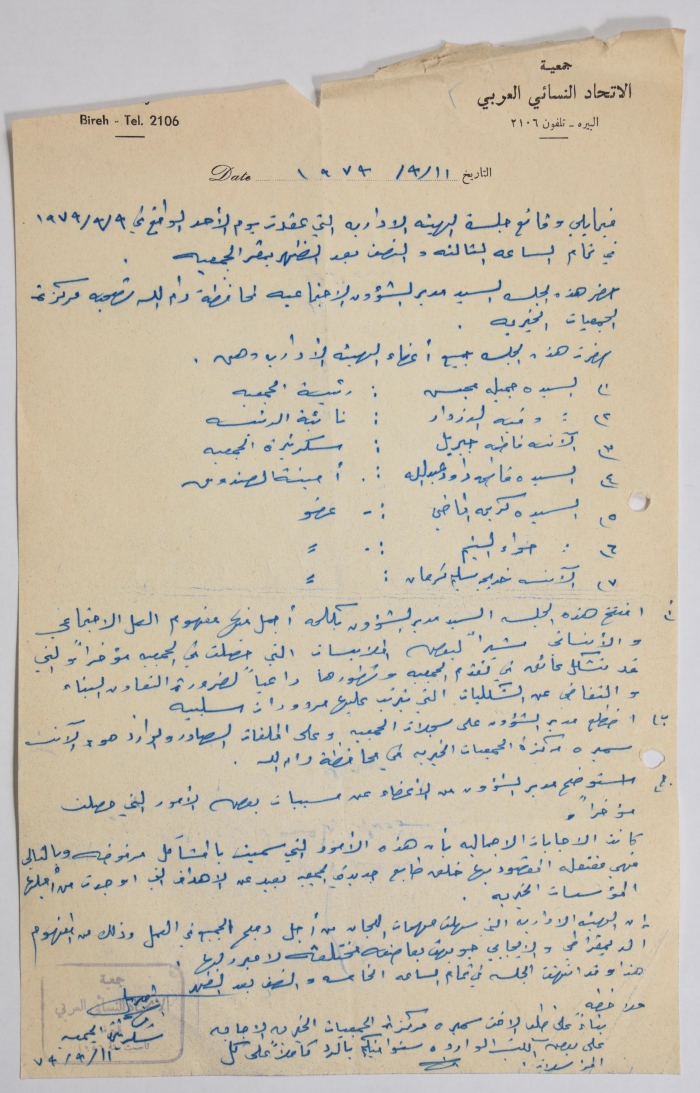 جمعية
الاتحاد النسائي العربي
البيره - تلفون ٢١٠٦
Bireh - Tel. 2106
التاريخ ١١/٣/١٩٧٣ Date
فيما يلي وقائع جلسة الهيئه الاداريه التي عقدت يوم الأحد الواقع في ١٩٧٣/٣/٩
في تمام الساعه الثالثه و النصف بعد الظهر بمقر الجمعيه .
حضر هذه الجلسه السيد مدير الشؤون الاجتماعيه لمحافظة رام الله تصحبه مركزة
الجمعيات الخيريه .
حضرت هذه الجلسه جميع أعضاء الهيئه الأداريه وهن .
١) السيده جميله خميس : رئيسة الجمعيه
٢) : وفيه الدزدار : نائبة الرئيسه
٣) الآنسه فاطمه جبريل : سكرتيرة الجمعيه
٤) السيده فاطمه داود عبدالله : أمينة الصندوق
٥) السيده كريمه القاضي :- عضو
٦) : حواء اليتيم :- =
٧) الآنسه خديجه سليم قرعان : =
أ) افتتح هذه الجلسه السيد مدير الشؤون بكلمه أجمل فيها مفهوم العمل الاجتماعي
و الأنساني مشيراً لبعض الملابسات التي حصلت في الجمعيه مؤخراً والتي
قد تشكل عائق في تقدم الجمعيه وتطورها داعياً لضرورة التعاون البناء
و التغاضي عن الشكليات التي يترتب عليها مردودات سلبيه
ب) اطلع مدير الشؤون على سجلات الجمعيه وعلى الملفات الصادر والوارد هو والآنسه
سميره مركزة الجمعيات الخيريه في محافظة رام الله .
ج) استوضح مدير الشؤون من الأعضاء عن مسببات بعض الأمور التي حصلت
مؤخراً و
كانت الاجابات الاجماليه بأن هذه الأمور التي سميت بالمشاكل مرفوضه وبالتالي
فهي مفتعله المقصود بها خلق طابع جديد للجمعيه بعيد عن الاهداف التي اوجدت من أجلها
المؤسسات الخيريه .
إن الهيئه الاداريه التي سهلت مهمات اللجان من أجل دمج الجميع في العمل وذلك من المفهوم
الديمقراطي و الإيجابي جوبهت بعاصفه مختلفه لا مبرر لها .
هذا وقد انتهت الجلسه في تمام الساعه الخامسه و النصف بعد الظهر
سكرتيرة الجمعيه
٧٣/٣/١١
ملاحظه
بناءً على طلب الاخت سميره مركزة الجمعيات الخيريه الاجابه
على بعض الكتب الوارده سنوافيكم بالرد كاملاً على كل
المراسلات .
جمعية
الاتحاد النسائي العربي